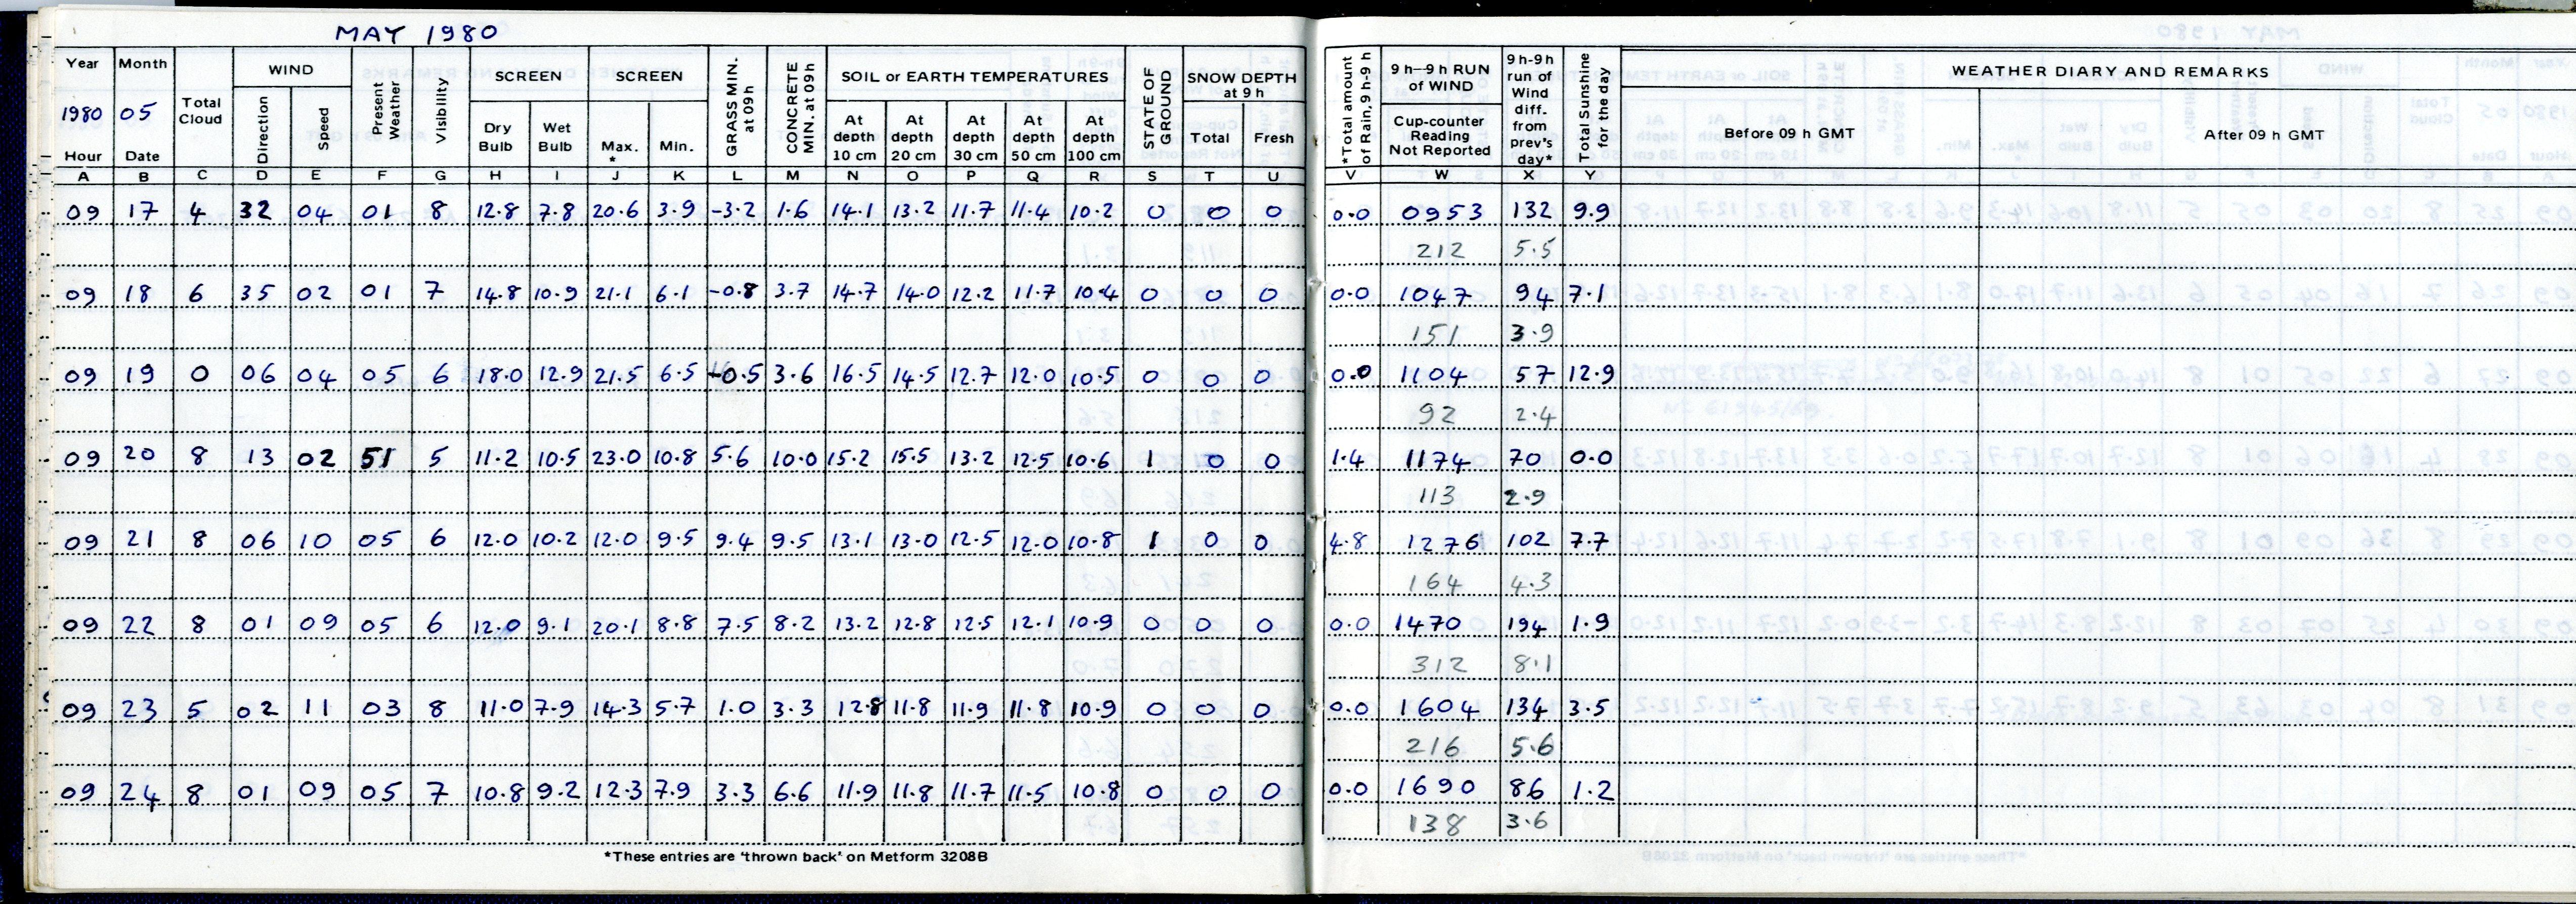 MAY 1980
Year Month Total Cloud WIND Present Weather Visibility SCREEN SCREEN GRASS MIN. at 09h CONCRETE MIN. at 09h SOIL or EARTH TEMPERATURES STATE OF GROUND SNOW DEPTH at 9 h *Total amount of Rain, 9 h-9 h 9 h—9 h RUN of WIND 9 h-9 h run of Wind diff. from prev's day* Total Sunshine for the day WEATHER DIARY AND REMARKS
1980 05 Direction Speed Dry Bulb Wet Bulb Max. * Min. At depth 10 cm At depth 20 cm At depth 30 cm At depth 50 cm At depth 100 cm Total Fresh Cup-counter Reading Not Reported Before 09 h GMT After 09 h GMT
Hour Date
A B C D E F G H I J K L M N O P Q R S T U V W X Y
09 17 4 32 04 01 8 12.8 7.8 20.6 3.9 -3.2 1.6 14.1 13.2 11.7 11.4 10.2 0 0 0 0.0 0953 132 9.9
212 5.5
09 18 6 35 02 01 7 14.8 10.9 21.1 6.1 -0.8 3.7 14.7 14.0 12.2 11.7 10.4 0 0 0 0.0 1047 94 7.1
151 3.9
09 19 0 06 04 05 6 18.0 12.9 21.5 6.5 -0.5 3.6 16.5 14.5 12.7 12.0 10.5 0 0 0 0.0 1104 57 12.9
92 2.4
09 20 8 13 02 51 5 11.2 10.5 23.0 10.8 5.6 10.0 15.2 15.5 13.2 12.5 10.6 1 0 0 1.4 1174 70 0.0
113 2.9
09 21 8 06 10 05 6 12.0 10.2 12.0 9.5 9.4 9.5 13.1 13.0 12.5 12.0 10.8 1 0 0 4.8 1276 102 7.7
164 4.3
09 22 8 01 09 05 6 12.0 9.1 20.1 8.8 7.5 8.2 13.2 12.8 12.5 12.1 10.9 0 0 0 0.0 1470 194 1.9
312 8.1
09 23 5 02 11 03 8 11.0 7.9 14.3 5.7 1.0 3.3 12.8 11.8 11.9 11.8 10.9 0 0 0 0.0 1604 134 3.5
216 5.6
09 24 8 01 09 05 7 10.8 9.2 12.3 7.9 3.3 6.6 11.9 11.8 11.7 11.5 10.8 0 0 0 0.0 1690 86 1.2
138 3.6
*These entries are 'thrown back' on Metform 3208B